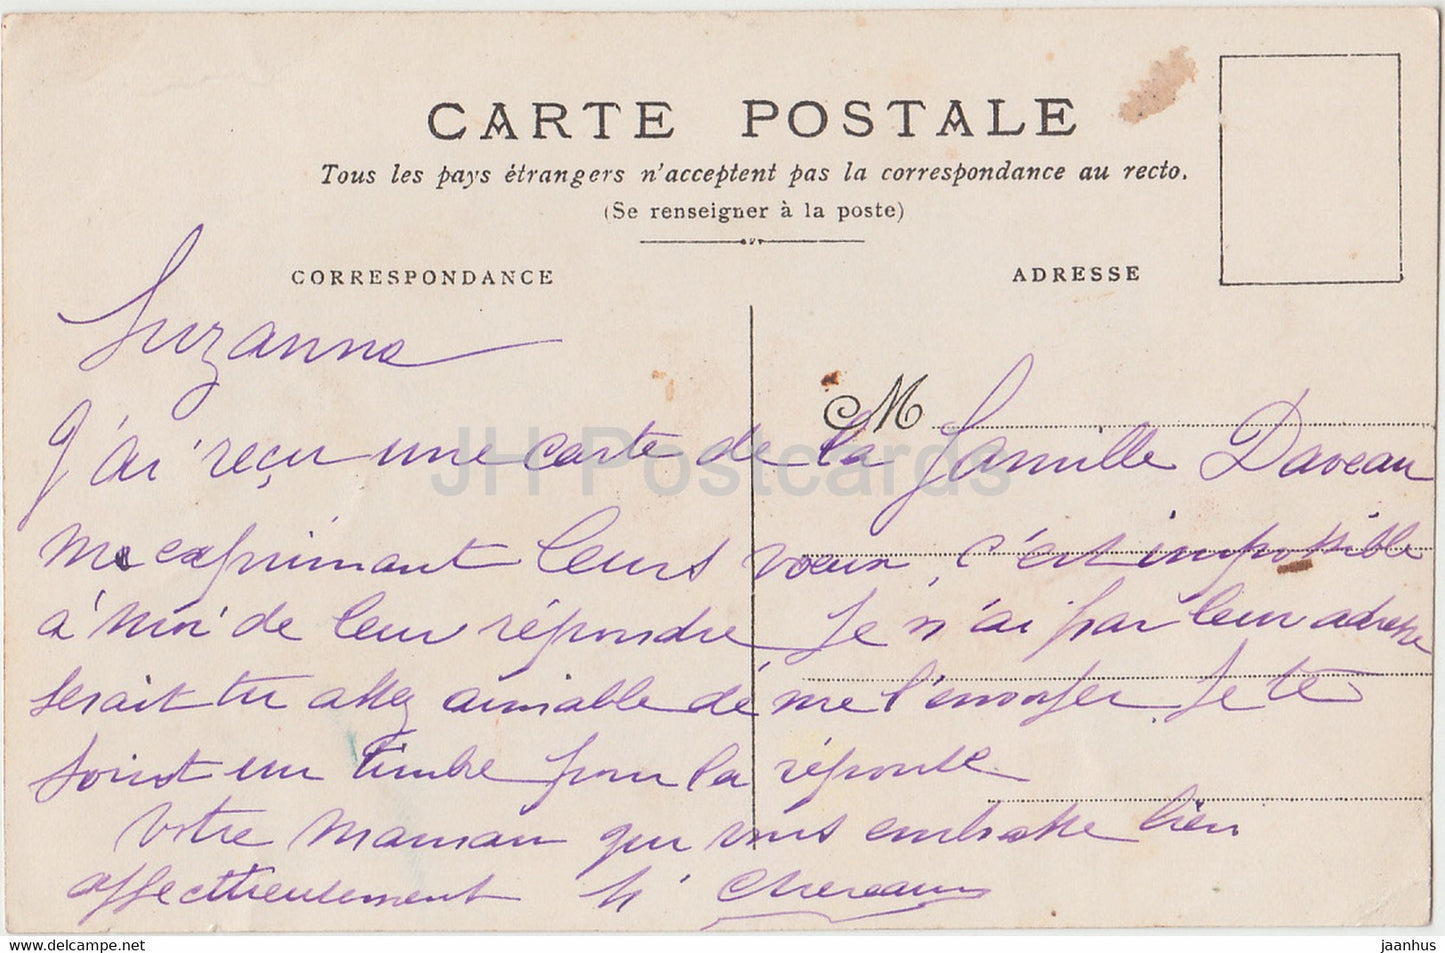 CARTE POSTALE
Tous les pays étrangers n'acceptent pas la correspondance au recto.
(Se renseigner à la poste)
CORRESPONDANCE
ADRESSE
M
Suzanne
J'ai reçu une carte de la famille Daveau
me exprimant leurs voeux, c'est impossible
à moi de leur répondre Je n'ai pas leur adresse
serait tu assez aimable de me l'envoyer Je te
joint un timbre pour la réponse
Votre maman qui vous embrasse bien
affectueusement
JH Postcards
jaanhus